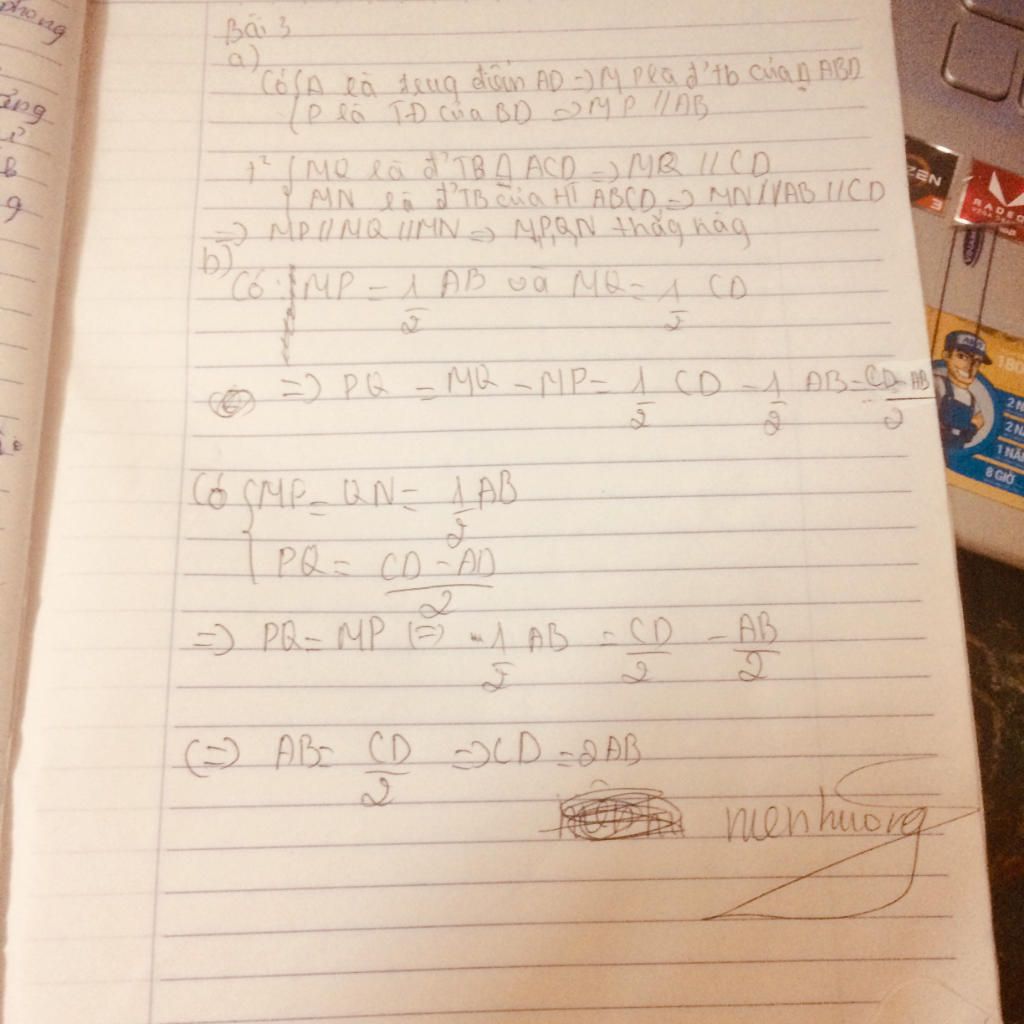 phong
Bài 3
a)
Có { A là trung điểm AD => MP là đ' tb của Δ ABD
{ P là TĐ của BD => MP // AB
{ MQ là đ' TB Δ ACD => MQ // CD
MN là đ' TB của HT ABCD => MN // AB // CD
=> MP // MQ // MN => M,P,Q,N thẳg hàg
b)
Có : MP = 1/2 AB và MQ = 1/2 CD
=> PQ = MQ - MP = 1/2 CD - 1/2 AB = (CD - AB)/2
Có { MP = QN = 1/2 AB
{ PQ = (CD - AD)/2
=> PQ = MP (=) 1/2 AB = CD/2 - AB/2
(=) AB = CD/2 => CD = 2AB
nienhuong
ZEN
3
RADEO
180
2 N
2 N
1 NĂ
8 GIỜ